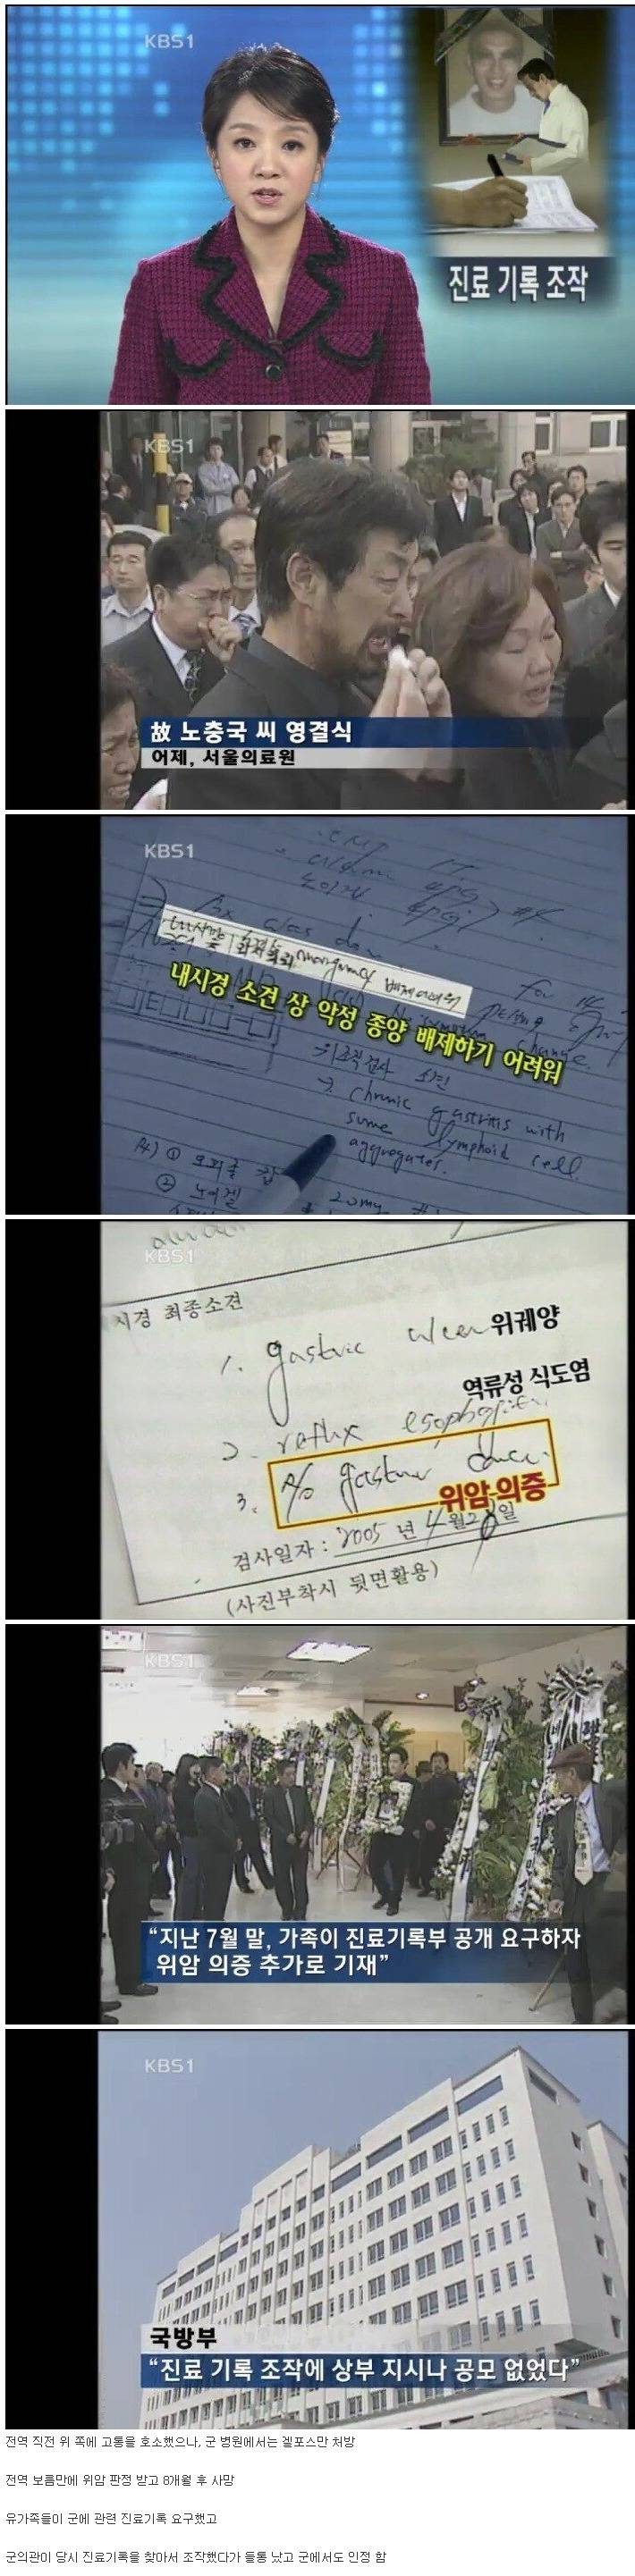 KBS1
진료 기록 조작
KBS1
故 노충국 씨 영결식
어제, 서울의료원
KBS1
배제어려워
내시경 소견 상 악성 종양 배제하기 어려워
위조직검사 소견
→ chronic gastritis with
some lymphoid cell
aggregates.
KBS1
시경 최종소견
1. gastric ulcer 위궤양
역류성 식도염
2. reflux
3. R/O
위암 의증
검사일자 : 2005 년 4월 28일
(사진부착시 뒷면활용)
KBS1
“지난 7월 말, 가족이 진료기록부 공개 요구하자
위암 의증 추가로 기재”
KBS1
국방부
“진료 기록 조작에 상부 지시나 공모 없었다”
전역 직전 위 쪽에 고통을 호소했으나, 군 병원에서는 겔포스만 처방
전역 보름만에 위암 판정 받고 8개월 후 사망
유가족들이 군에 관련 진료기록 요구했고
군의관이 당시 진료기록을 찾아서 조작했다가 들통 났고 군에서도 인정 함